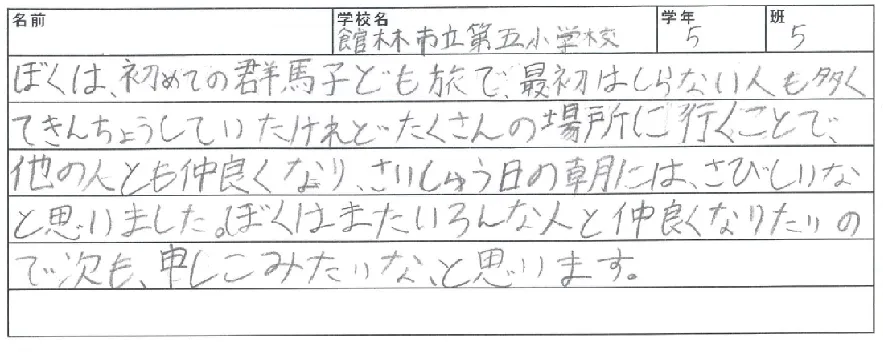 名前 学校名 館林市立第五小学校 学年 5 班 5
ぼくは、初めての群馬子ども旅で、最初はしらない人も多く
てきんちょうしていたけれどたくさんの場所に行くことで、
他の人とも仲良くなり、さいしゅう日の朝には、さびしいな
と思いました。ぼくはまたいろんな人と仲良くなりたいの
で次も、申しこみたいな、と思います。